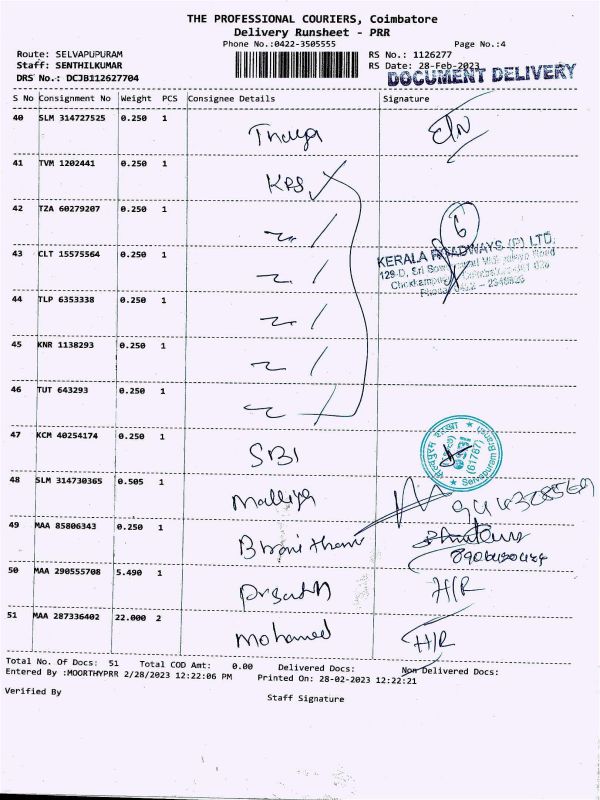 THE PROFESSIONAL COURIERS, Coimbatore
Delivery Runsheet - PRR
Phone No.:0422-3505555 Page No.:4
Route: SELVAPUPURAM RS No.: 1126277
Staff: SENTHILKUMAR RS Date: 28-Feb-2023
DRS No.: DCJB112627704 DOCUMENT DELIVERY
S No Consignment No Weight PCS Consignee Details Signature
40 SLM 314727525 0.250 1
41 TVM 1202441 0.250 1 KRS
42 TZA 60279207 0.250 1
43 CLT 15575564 0.250 1
KERALA ROADWAYS (P) LTD.
44 TLP 6353338 0.250 1
45 KNR 1138293 0.250 1
46 TUT 643293 0.250 1
47 KCM 40254174 0.250 1 SBI
SBI (61787) Selvapuram Branch
48 SLM 314730365 0.505 1 Malliga
49 MAA 85806343 0.250 1
50 MAA 290555708 5.490 1 H/R
51 MAA 287336402 22.000 2 Mohamed H/R
Total No. Of Docs: 51 Total COD Amt: 0.00 Delivered Docs: Non Delivered Docs:
Entered By :MOORTHYPRR 2/28/2023 12:22:06 PM Printed On: 28-02-2023 12:22:21
Verified By Staff Signature